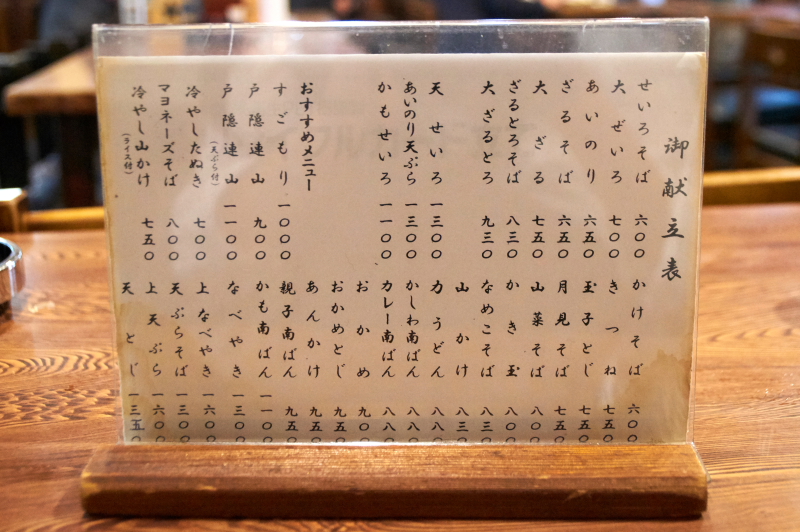 御献立表
せいろそば 六〇〇
大ぜいろ 七〇〇
あいのり 六五〇
ざるそば 六五〇
大ざる 七五〇
ざるとろそば 八三〇
大ざるとろ 九三〇
天せいろ 一三〇〇
あいのり天ぷら 一三〇〇
かもせいろ 一一〇〇
おすすめメニュー
すごもり 一〇〇〇
戸隠連山 九〇〇
戸隠連山(天ぷら付) 一一〇〇
冷やしたぬき 七〇〇
マヨネーズそば 八〇〇
冷やし山かけ(ライス付) 七五〇
かけそば 六〇〇
きつね 七五〇
玉子とじ 七五〇
月見そば 七五〇
山菜そば 八〇〇
かき玉 八〇〇
なめこそば 八三〇
山かけ 八三〇
力うどん 八八〇
かしわ南ばん 八八〇
カレー南ばん 八八〇
おかめ 九〇〇
おかめとじ 九五〇
あんかけ 九五〇
親子南ばん 九五〇
かも南ばん 一一〇〇
なべやき 一三〇〇
上なべやき 一六〇〇
天ぷらそば 一三〇〇
上天ぷら 一六〇〇
天とじ 一三五〇